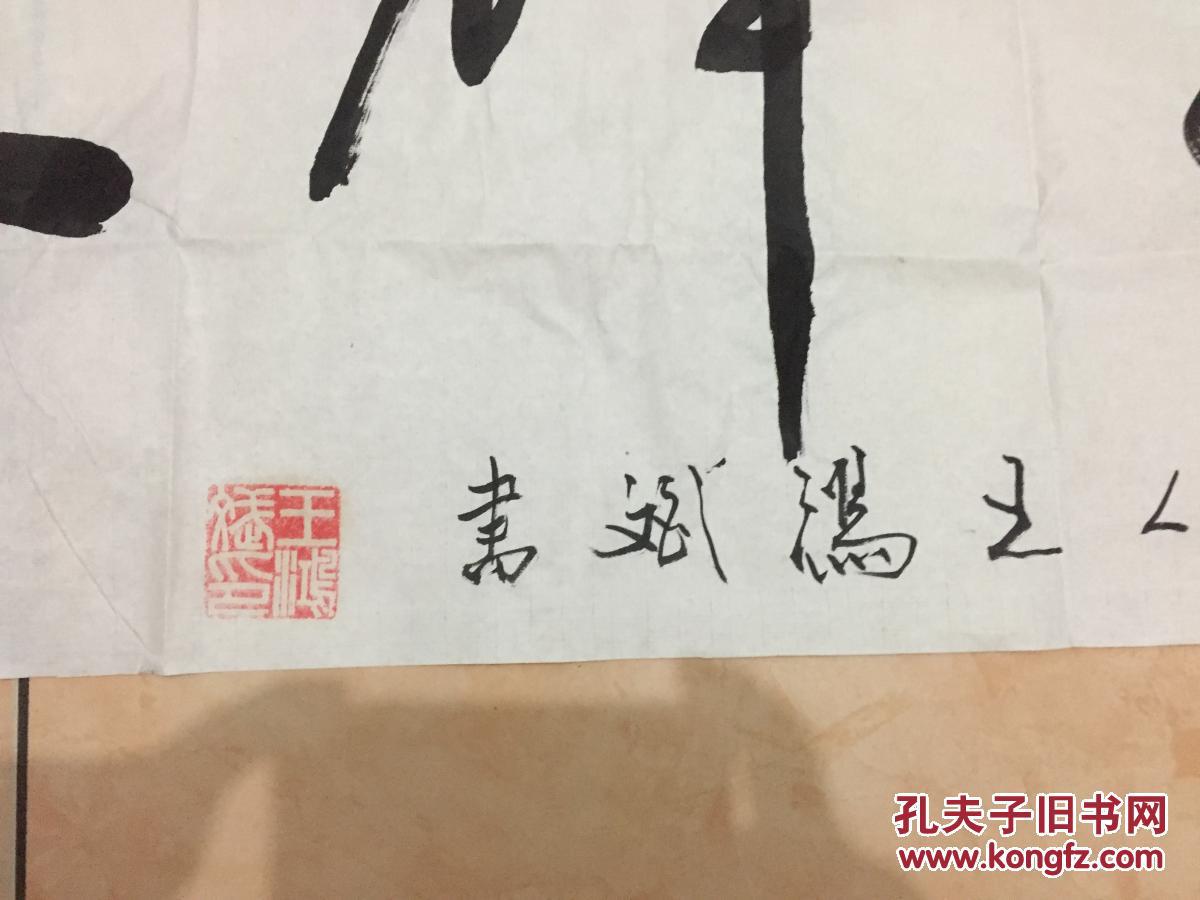 王鴻斌書
王鴻斌印
孔夫子旧书网
www.kongfz.com